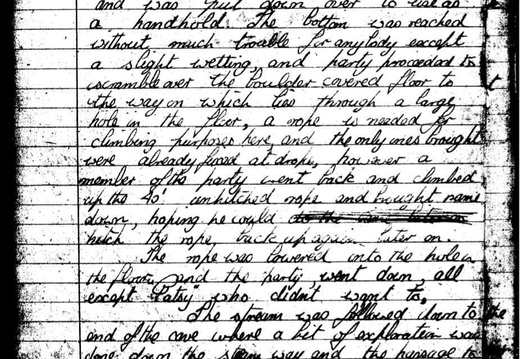 and was put down over to use as
a handhold. The bottom was reached
without much trouble for anybody except
a slight wetting, and party proceeded to
scramble over the boulder covered floor to
the way on which lies through a large
hole in the floor, a rope is needed for
climbing purposes here, and the only ones brought
were already fixed at drops, however a
member of the party went back and climbed
up the 40' unhitched rope and brought same
down, hoping he could
hitch the rope, back up again later on.
The rope was lowered into the hole in
the floor, and the party went down, all
except "Patsy" who didn't want to.
The stream was followed down to the
end of the cave where a bit of exploration was
done down the stream way and the passage to